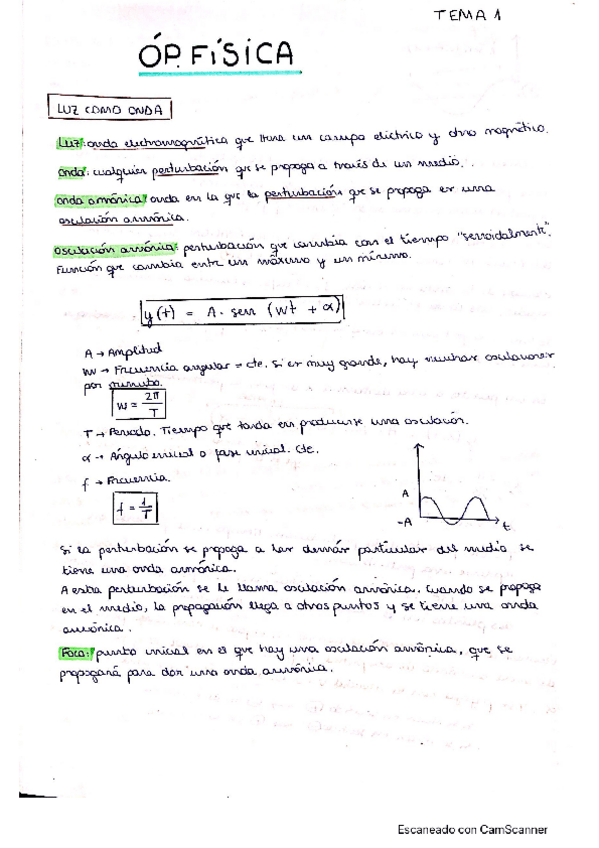 TEMA 1
ÓP. FÍSICA
LUZ COMO ONDA
Luz: onda electromagnética que lleva un campo eléctrico y otro magnético.
onda: cualquier perturbación que se propaga a través de un medio.
onda armónica: onda en la que la perturbación que se propaga es una
oscilación armónica.
oscilación armónica: perturbación que cambia con el tiempo "senoidalmente".
Función que cambia entre un máximo y un mínimo.
y(t) = A · sen (wt + α)
A → Amplitud
w → Frecuencia angular = cte. Si es muy grande, hay muchas oscilaciones
por
w = 2π/T
T → Periodo. Tiempo que tarda en producirse una oscilación.
α → Ángulo inicial o fase inicial. Cte.
f → Frecuencia.
f = 1/T
A
-A
t
Si la perturbación se propaga a las demás partículas del medio, se
tiene una onda armónica.
A esta perturbación se le llama oscilación armónica. Cuando se propaga
en el medio, la propagación llega a otros puntos y se tiene una onda
armónica.
Foco: punto inicial en el que hay una oscilación armónica, que se
propagará para dar una onda armónica.
Escaneado con CamScanner